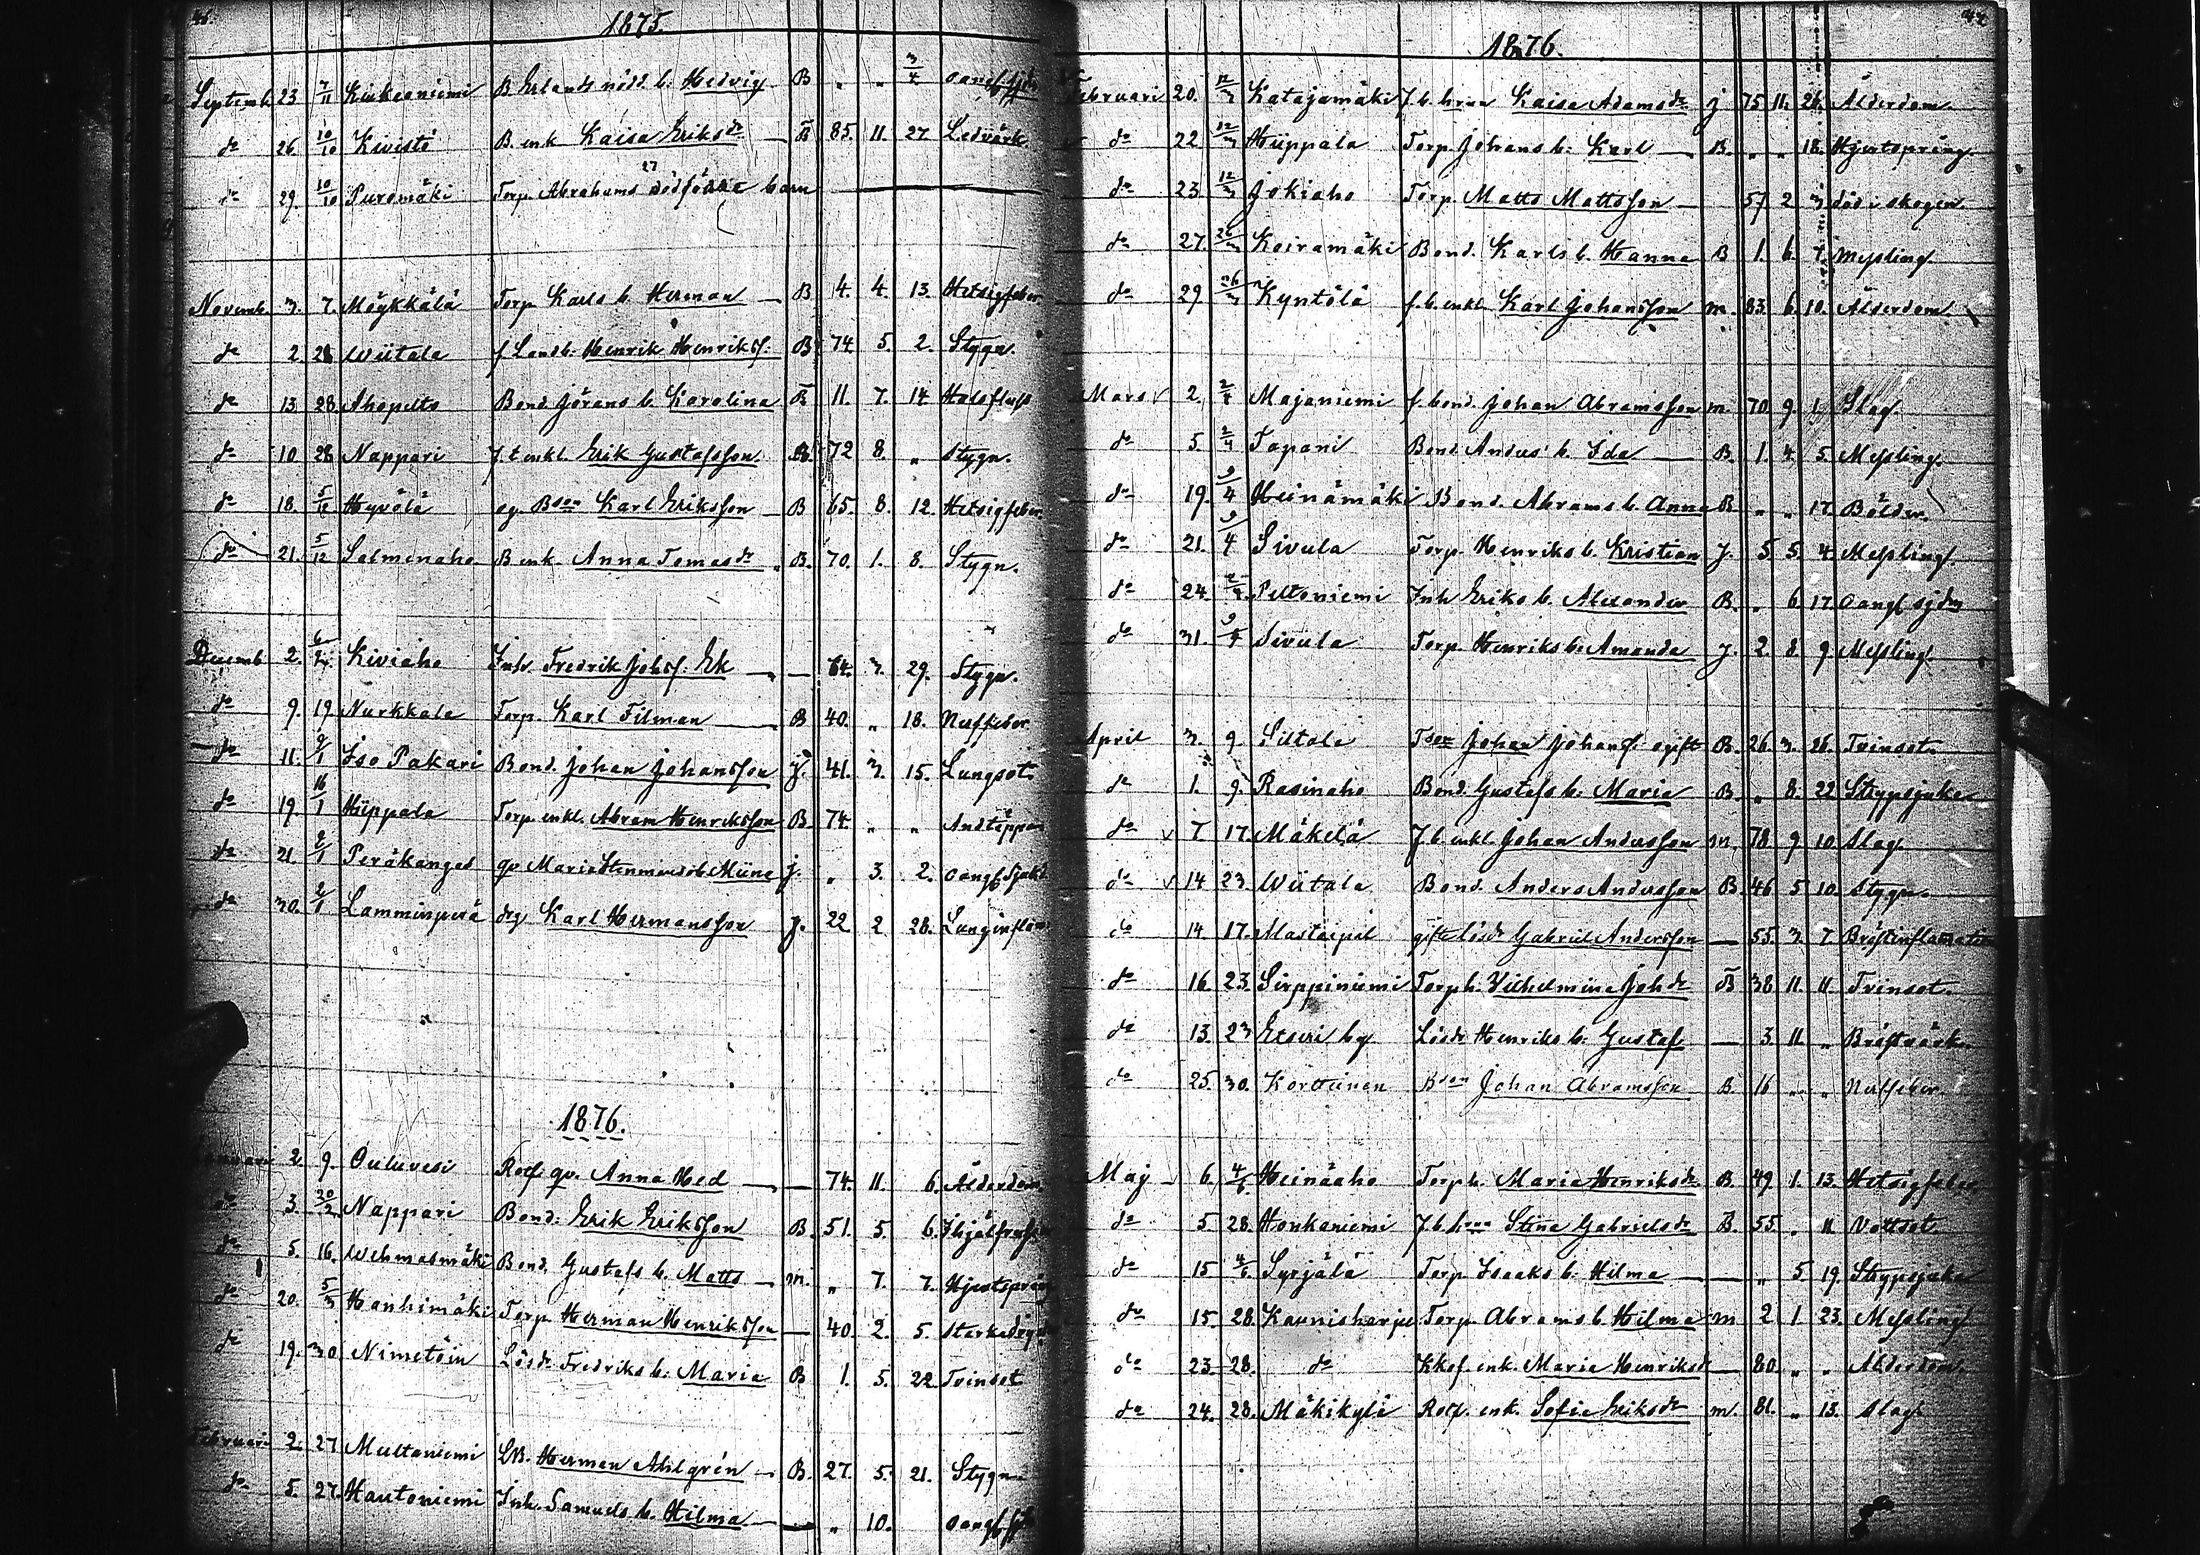 46.
1875.
Septemb. 23 7/11 Kiukaaniemi B. Erlands nöd. b. Hedvig B „ „ 3/4 oangifs.
do 26. 10/10 Kivistö B. enk Kaisa Eriksdr — B 85. 11. 27. Ledvärk
do 29. 10/10 Puromäki Torp. Abrahams dödfödde barn
Novemb. 3. 7. Möykkälä Torp. Karls b. Herman — B 4. 4. 13. Hetsigfeber
do 2. 28 Wiitala f. Landb. Henrik Henrikss. B 74 5. 2. Stygn.
do 13. 28. Ahopelto Bond. Jörans b. Karolina B 11. 7. 14 Halsfluss
do 10 28 Nappari f. t enkl. Erik Gustafsson B. 72 8. „ Stygn.
do 18. 5/12 Hyvölä og. Bson Karl Eriksson B 65. 8. 12. Hetsigfeber.
do 21. 5/12 Salmenaho B enk. Anna Tomasdr B. 70. 1. 8. Stygn.
Decemb. 2. Kiviaho Inh. Fredrik Johss. Ek — 64. 3. 29. Stygn.
do 9. 19 Nurkkala Torp. Karl Filman — B 40. „ 18. Nerffeber
do 11. 9/1 Iso Pakari Bond. Johan Johansson j. 41. 3. 15. Lungsot.
do 19. 16/1 Hiippala Torp. enkl. Abram Henriksson B. 74. „ „ Andtäppa
do 21. 2/1 Peräkangas qv Maria Stenmans ob. Miina j. „ 3. 2. oangifs Sjukd
do 30. 2/1 Lamminperä drg Karl Hermansson j. 22 2 28. Lunginflam.
1876.
Januari 2. 9. Ouluvesi Rotf. qv. Anna Hed — 74. 11. 6. Ålderdom.
do 3. 20/2 Nappari Bond. Erik Eriksson B. 51. 5. 6. Ihjälfrusen
do 5. 16. Wehmasmäki Bond. Gustafs b. Matts — m. „ 7. 7. Hjertspräng
do 20. 5/3 Hanhimäki Torp. Herman Henriksson — 40. 2. 5.
do 19. 30 Nimetöin Lösdr Fredriks b. Maria B 1. 5. 22 Tvinsot
Februari 2. 27 Multaniemi LB. Herman Ahlgrén — B. 27. 5. 21. Stygn
do 5. 27. Hautoniemi Inh. Samuels b. Hilma — „ 10. oangifs sjk
1876.
Februari 20. 12/3 Katajamäki f. b. hrun Kaisa Adamsdr j 75 11. 26. Ålderdom.
do 22 12/3 Hiippala Torp. Johans b. Karl — B. „ „ 18. Hjertspräng.
do 23 12/3 Jokiaho Torp. Matts Mattsson — 57. 2 3 död i skogen.
do 27. 26/3 Koiramäki Bond. Karls b. Hanna B 1. 6. 7. Messling.
do 29 26/3 Kyntölä f. b. enkl. Karl Johansson m. 83. 6. 10. Ålderdom.
Mars 2 2/4 Majaniemi f. bond. Johan Abramsson m 70. 9. 1. Slag.
do 5 2/4 Tapani Bond. Anders' b. Ida — B. 1. 4. 5. Messling.
do 19. 9/4 Heinämäki Bond. Abrams b. Anna B „ „ 17. Bölder.
do 21. 9/4 Sivula Torp. Henriks b. Kristian j. 5 5. 4 Messling.
do 24. Peltoniemi Inh Eriks b. Alexander B. „ 6 17 oangifs sjdm
do 31. 9/4 Sivula Torp. Henriks b. Amanda j. 2. 8. 9. Messling.
April 3. 9. Siltala Tson Johan Johanss. ogift B. 26 3. 26. Tvinsot.
do 1. 9. Rasinaho Bond. Gustafs b. Maria B. „ 8. 22. Strypsjuka
do 7 17. Mäkelä f. b. enkl. Johan Andersson m. 78 9 10. Slag.
do 14 23. Wiitala Bond. Anders Andersson B. 46 5 10. Stygn.
do 14. 17. Mastaipil gifte lösdr Gabriel Andersson — 55. 3. 7. Bröstinflamation
do 16. 23. Sirppiniemi Torp h. Vilhelmina Johdr B 38 11. 11. Tvinsot.
do 13. 23 Etseri by Lösdr Henriks b. Gustaf — 3 11. „ Bröstvärk.
do 25. 30. Korttinen Bson Johan Abramsson B. 16 „ „ Nerffeber.
Maj 6. 4/6 Heinäaho Torp h. Maria Henriksdr B. 49. 1. 13. Hetsigfeber
do 5. 28. Honkaniemi f. b. hrun Stina Gabrielsdr B. 55. „ 11 Vattsot.
do 15 4/6 Syrjälä Torp. Isaaks b. Hilma — „ 5 19. Strypsjuka
do 15. 28. Kaunisharju Torp. Abrams b. Hilma m 2 1. 23. Messling
do 23 28. do Kkof. enk. Maria Henriksd — 80. „ „ Ålderdom.
do 24. 28. Mäkikylä Rotf. enk. Sofia Eriksdr m. 81. „ 13. Slag.